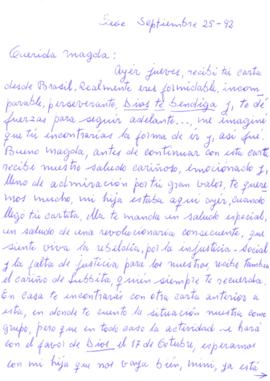 Septiembre 25-92
Querida Magda:
Ayer jueves, recibí tú carta
desde Brasil. Realmente eres formidable, incom
parable, perseverante, Dios te bendiga y, te dé
fuerzas para seguir adelante..., me imaginé
que tú encontrarías la forma de ir y, así fué.
Bueno Magda, antes de continuar con esta carta
recibe nuestro saludo cariñoso, emocionado y,
lleno de admiración por tú gran valor, te quere
mos mucho, mi hija estaba aquí ayer, cuando
llegó tú cartita, ella te manda un saludo especial,
un saludo de una revolucionaria consecuente, que
siente viva la rebeldía, por la injusticia-social
y la falta de justicia para los nuestros recibe también
el cariño de quién siempre te recuerda.
En casa te encontrarás con otra carta anterior a
esta, en donde te cuento la situación nuestra como
grupo, pero que en todo caso la actividad se hará
con el favor de Dios, el 17 de Octubre, esperamos
con mi hija que nos vaya bien, mimi, ya está